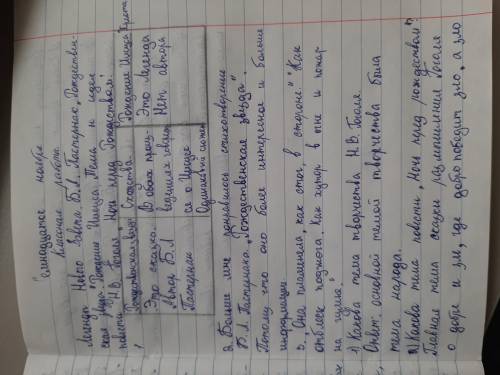 Семнадцатое ноября
Классная работа.
Легенда Нового Завета. Б. Л. Пастернак „Рождествен-
ская звезда." Рождение Иисуса. Тема и идея
повести Н.В. Гоголя „Ночь перед Рождеством.
1
Сходства
Рождение Иисуса Христа
Это сказка.
Автор Б.Л
Пастернак
В обоих произ-
ведениях говорит-
ся о Иисусе
Одинаковый сюжет
Это легенда
Нет автора
2. Больше мне понравилось стихотворение
Б. Л. Пастернака „Рождественская звезда".
Потому что оно более интересное и больше
информации
3. „Она пламенела, как стог в стороне" „Как
отблеск поджога. Как хутор в огне и пожар
на гумне"
1) Какова тема творчества Н.В. Гоголя.
Ответ: основной темой творчества была
тема народа.
2) Какова тема повести „Ночь перед рождеством"?
Главная тема сказки размышления Гоголя
о добре и зле, где добро победит зло, а зло